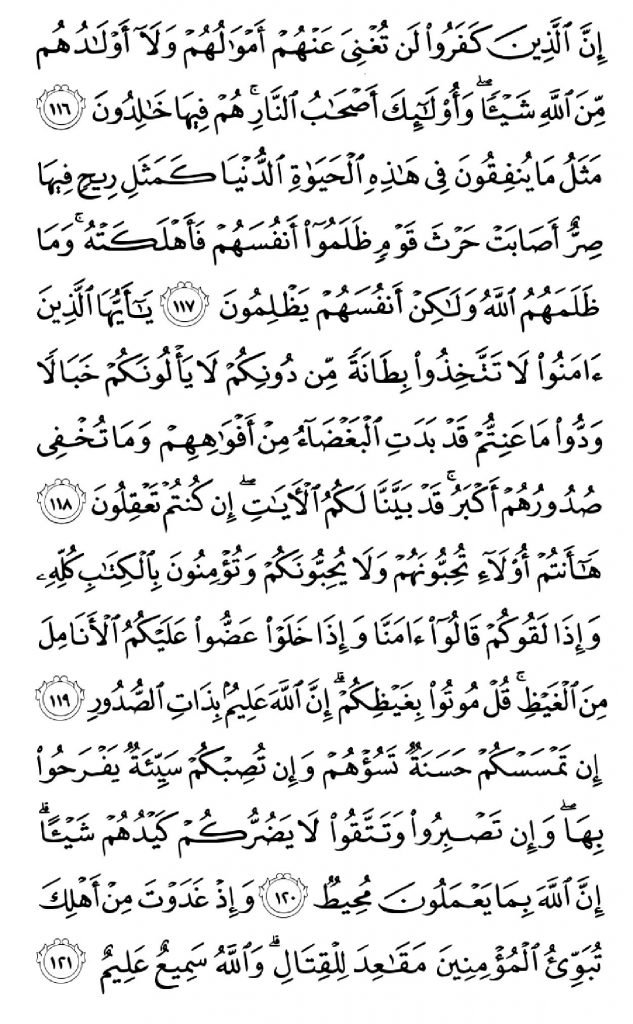 إِنَّ ٱلَّذِينَ كَفَرُوا۟ لَن تُغْنِىَ عَنْهُمْ أَمْوَٰلُهُمْ وَلَآ أَوْلَـٰدُهُم
مِّنَ ٱللَّهِ شَيْـًٔا ۖ وَأُو۟لَـٰٓئِكَ أَصْحَـٰبُ ٱلنَّارِ ۚ هُمْ فِيهَا خَـٰلِدُونَ ١١٦
مَثَلُ مَا يُنفِقُونَ فِى هَـٰذِهِ ٱلْحَيَوٰةِ ٱلدُّنْيَا كَمَثَلِ رِيحٍ فِيهَا
صِرٌّ أَصَابَتْ حَرْثَ قَوْمٍ ظَلَمُوٓا۟ أَنفُسَهُمْ فَأَهْلَكَتْهُ ۚ وَمَا
ظَلَمَهُمُ ٱللَّهُ وَلَـٰكِنْ أَنفُسَهُمْ يَظْلِمُونَ ١١٧ يَـٰٓأَيُّهَا ٱلَّذِينَ
ءَامَنُوا۟ لَا تَتَّخِذُوا۟ بِطَانَةً مِّن دُونِكُمْ لَا يَأْلُونَكُمْ خَبَالًا
وَدُّوا۟ مَا عَنِتُّمْ قَدْ بَدَتِ ٱلْبَغْضَآءُ مِنْ أَفْوَٰهِهِمْ وَمَا تُخْفِى
صُدُورُهُمْ أَكْبَرُ ۚ قَدْ بَيَّنَّا لَكُمُ ٱلْـَٔايَـٰتِ ۖ إِن كُنتُمْ تَعْقِلُونَ ١١٨
هَـٰٓأَنتُمْ أُو۟لَآءِ تُحِبُّونَهُمْ وَلَا يُحِبُّونَكُمْ وَتُؤْمِنُونَ بِٱلْكِتَـٰبِ كُلِّهِۦ
وَإِذَا لَقُوكُمْ قَالُوٓا۟ ءَامَنَّا وَإِذَا خَلَوْا۟ عَضُّوا۟ عَلَيْكُمُ ٱلْأَنَامِلَ
مِنَ ٱلْغَيْظِ ۚ قُلْ مُوتُوا۟ بِغَيْظِكُمْ ۗ إِنَّ ٱللَّهَ عَلِيمٌۢ بِذَاتِ ٱلصُّدُورِ ١١٩
إِن تَمْسَسْكُمْ حَسَنَةٌ تَسُؤْهُمْ وَإِن تُصِبْكُمْ سَيِّئَةٌ يَفْرَحُوا۟
بِهَا ۖ وَإِن تَصْبِرُوا۟ وَتَتَّقُوا۟ لَا يَضُرُّكُمْ كَيْدُهُمْ شَيْـًٔا ۗ
إِنَّ ٱللَّهَ بِمَا يَعْمَلُونَ مُحِيطٌ ١٢٠ وَإِذْ غَدَوْتَ مِنْ أَهْلِكَ
تُبَوِّئُ ٱلْمُؤْمِنِينَ مَقَـٰعِدَ لِلْقِتَالِ ۗ وَٱللَّهُ سَمِيعٌ عَلِيمٌ ١٢١